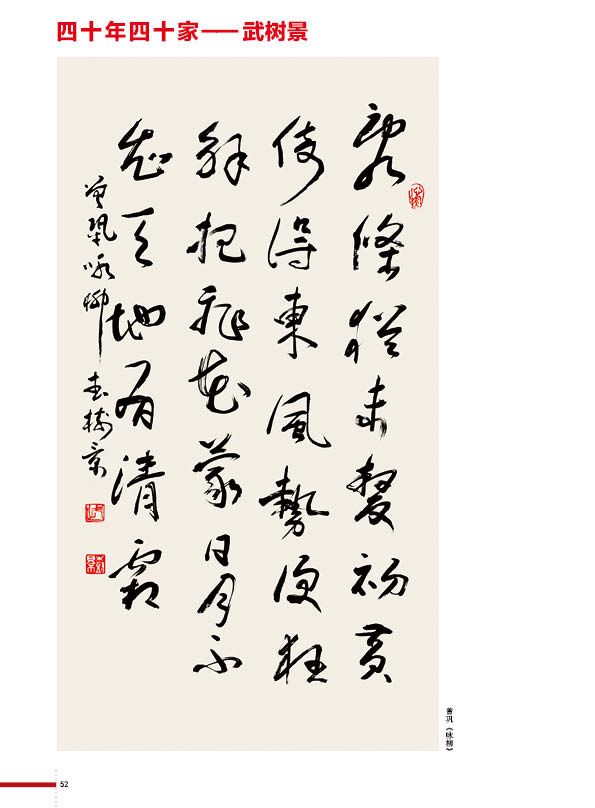 四十年四十家——武树景
亂條猶未變初黃
倚得東風勢便狂
解把飛花蒙日月不
知天地有清霜
曾鞏咏柳 武樹景
曾巩《咏柳》
52